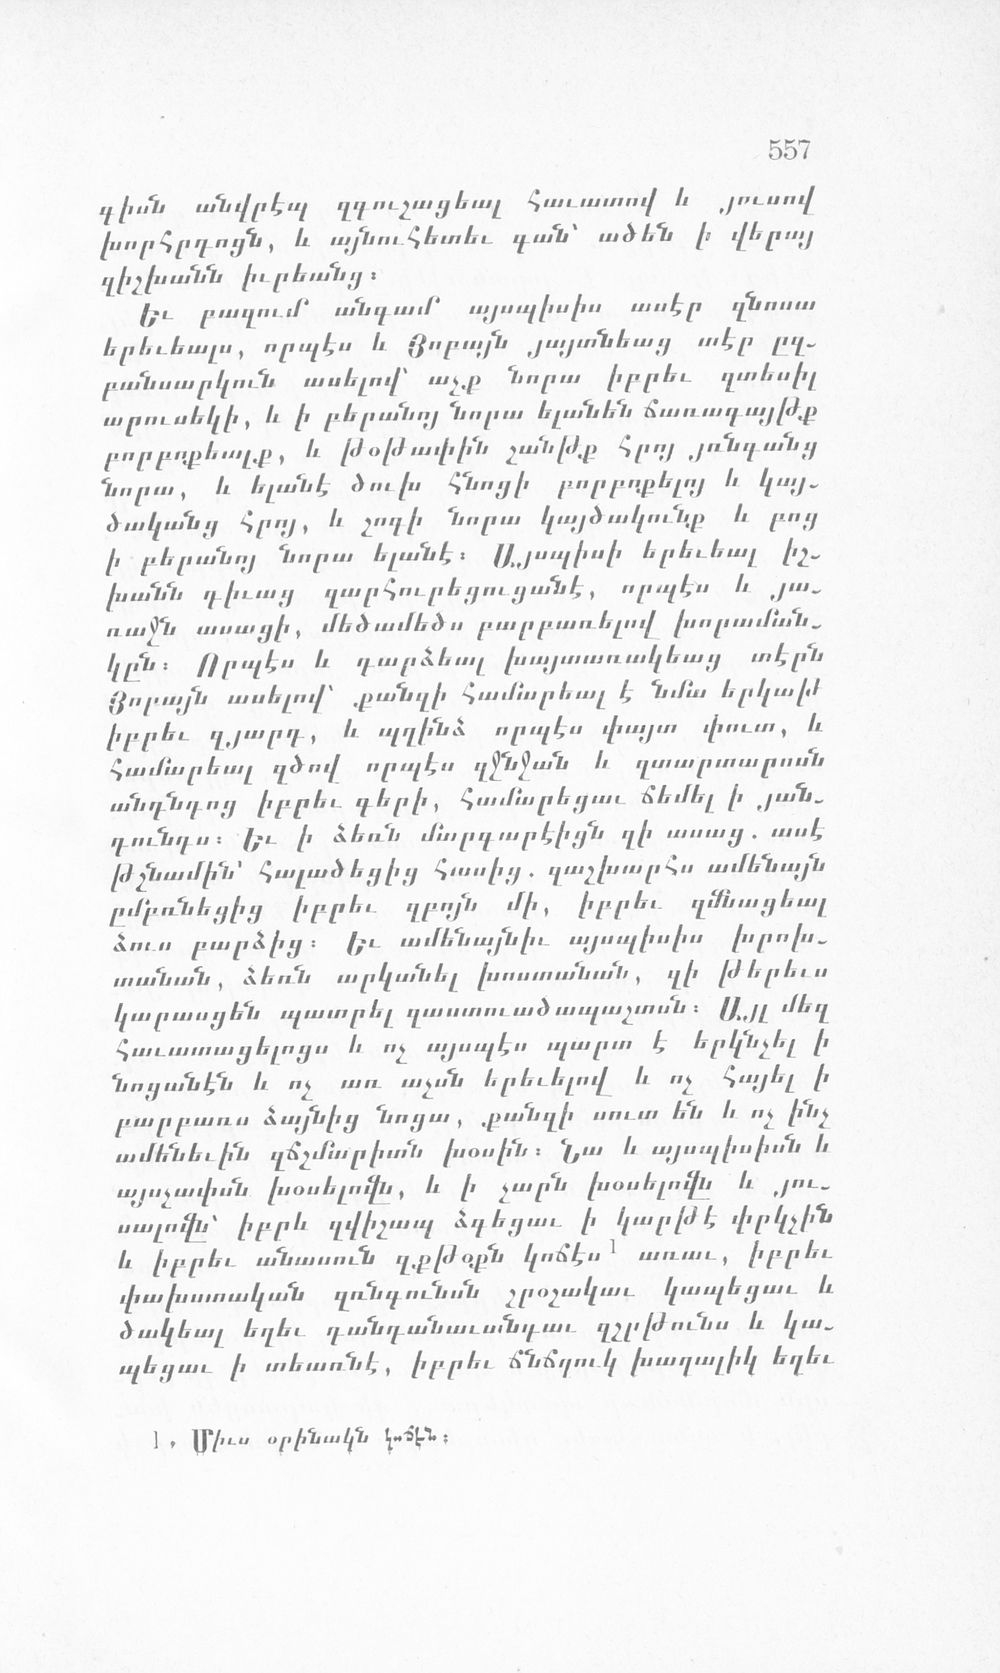 557
գիսն անվրէպ զգուշացեալ հաւատով և յուսով
խորհրդոցն, և այնուհետեւ գան՝ ածեն ի վերայ
զիշխանն իւրեանց։
Եւ բազում անգամ այսպիսիս ասէր զնոսա
երեւեալս, որպէս և Յոբայն յայտնեաց տէր ըզ֊
բանսարկուն ասելով՝ աչք նորա իբրեւ զտեսիլ
արուսեկի, և ի բերանոյ նորա ելանեն ճառագայթք
բորբոքեալք, և թօթափին շանթք հրոյ յռնգանց
նորա, և ելանէ ծուխ հնոցի բորբոքելոյ և կայ֊
ծականց հրոյ, և շոգի նորա կայծակունք և բոց
ի բերանոյ նորա ելանէ։ Այսպիսի երեւեալ իշ֊
խանն դիւաց զարհուրեցուցանէ, որպէս և յա֊
ռաջն ասացի, մեծամեծս բարբառելով խորաման֊
կըն։ Որպէս և դարձեալ խայտառակեաց տէրն
Յոբայն ասելով՝ քանզի համարեալ է նմա երկաթ
իբրեւ զյարդ, և պղինձ որպէս փայտ փուտ, և
համարեալ զծով որպէս զջնջան և զտարտարոսն
անդնդոց իբրեւ գերի, համարեցաւ ճեմել ի յան֊
դունդս։ Եւ ի ձեռն մարգարէիցն զի ասաց. ասէ
թշնամին՝ հալածեցից հասից. զաշխարհս ամենայն
ըմբռնեցից իբրեւ զբոյն մի, իբրեւ զմնացեալ
ձուս բարձից։ Եւ ամենայնիւ այսպիսիս խրոխ֊
տանան, ձեռն արկանել խոստանան, զի թերեւս
կարասցեն պատրել զաստուածապաշտսն։ Այլ մեզ
հաւատացելոցս և ոչ այսպէս պարտ է երկնչել ի
նոցանէն և ոչ առ աչսն երեւելով և ոչ հայել ի
բարբառս ձայնից նոցա, քանզի սուտ են և ոչ ինչ
ամենեւին զճշմարիտն խօսին։ Նա և այսպիսիսն և
այսչափսն խօսելովն, և ի չարն խօսելովն և յու֊
սալովն՝ իբրև զվիշապ ձգեցաւ ի կարթէ փրկչին
և իբրեւ անասուն զքթօքն կոճէս1 առաւ, իբրեւ
փախստական զռնգունսն շրօշակաւ կապեցաւ և
ծակեալ եղեւ դանդանաւանդաւ զշրթունս և կա֊
պեցաւ ի տեառնէ, իբրեւ ճնճղուկ խաղալիկ եղեւ
1. Միւս օրինակն կոճէն։